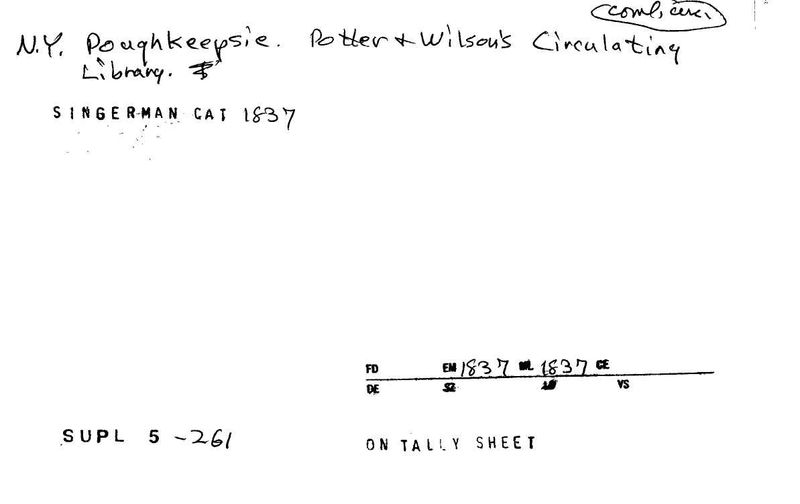 coml, circ.
N.Y. Poughkeepsie. Potter + Wilson's Circulating
Library.
SINGERMAN CAT 1837
FD EM 1837 ML 1837 CE
DE S2 VS
SUPL 5 -261
ON TALLY SHEET